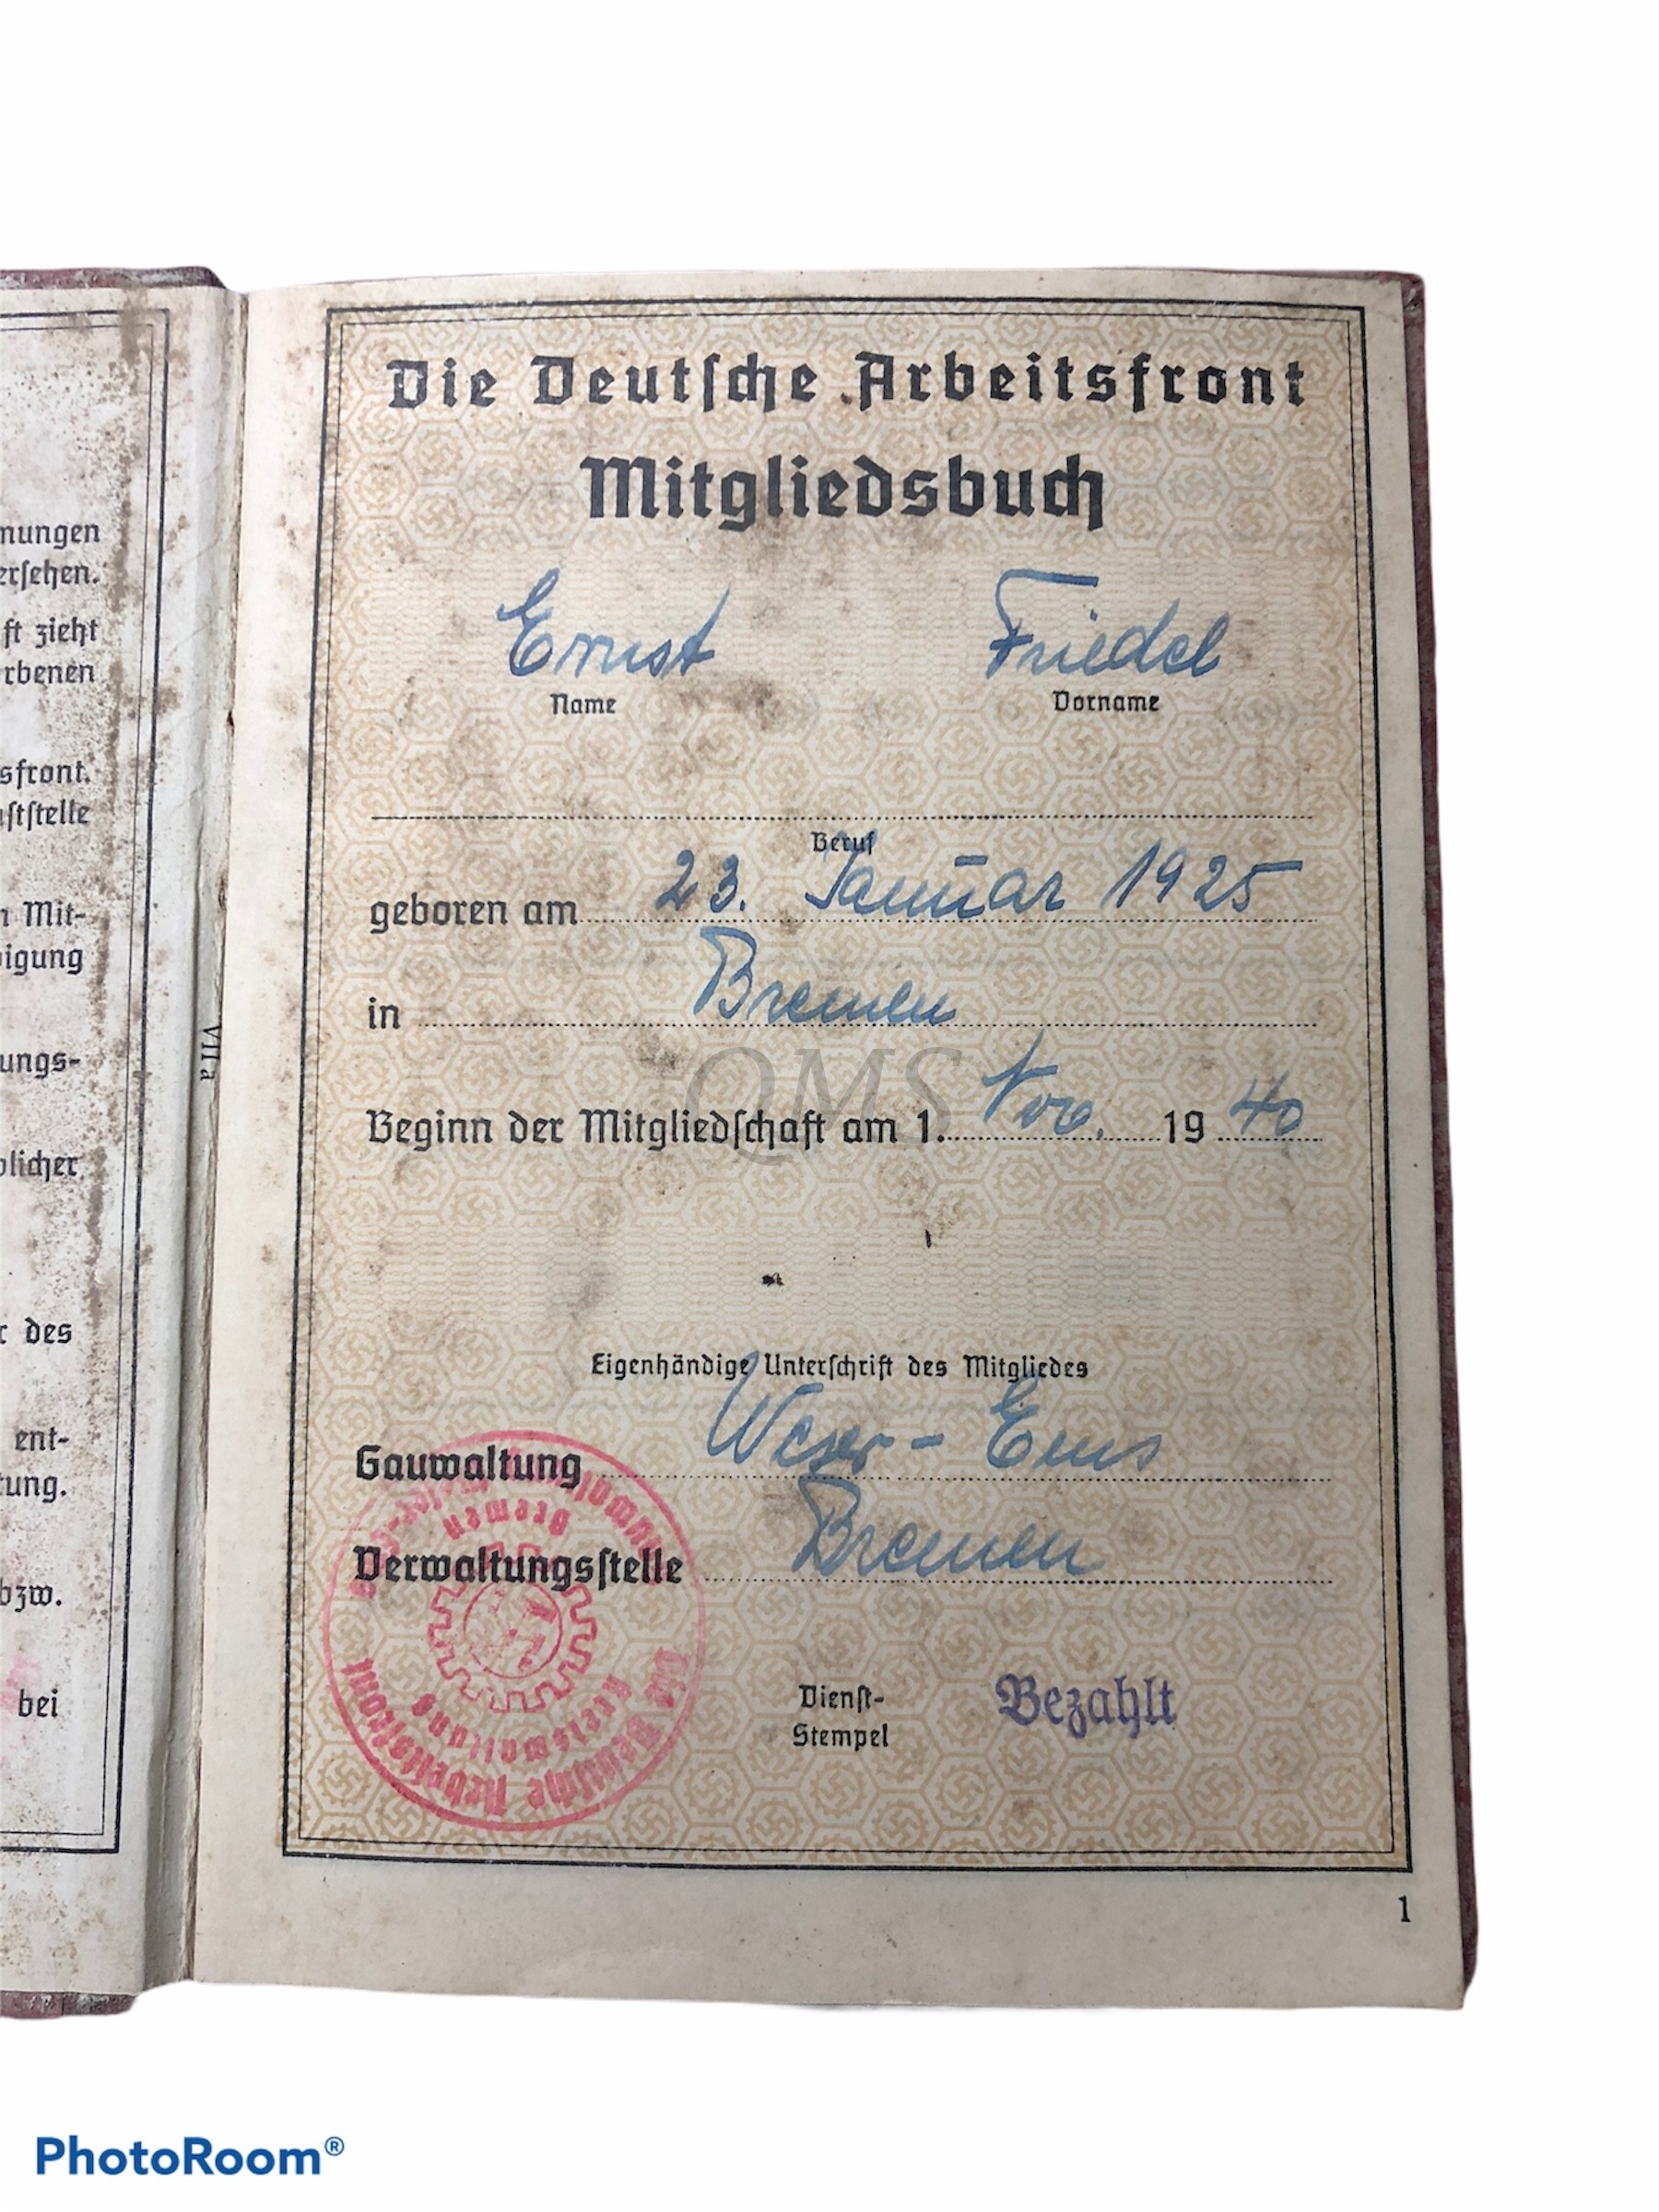 nungen
ersehen.
ft zieht
rbenen
sfront.
ststelle
n Mit-
igung
ungs-
licher
r des
ent-
tung.
bzw.
bei
VII a
Die Deutsche Arbeitsfront
Mitgliedsbuch
Ernst Friedel
Name Vorname
Beruf
geboren am 23. Januar 1925
in Bremen
QMS
Beginn der Mitgliedschaft am 1. Nov. 19 40
Eigenhändige Unterschrift des Mitgliedes
Gauwaltung Weser-Ems
Verwaltungsstelle Bremen
Die Deutsche Arbeitsfront
Gauwaltung Weser-Ems
Kreiswaltung
Bremen
Dienst-
Stempel
Bezahlt
1
PhotoRoom®